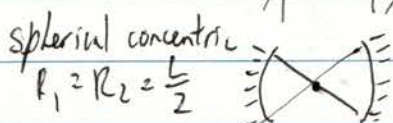 spherical concentric
R₁ = R₂ = L/2